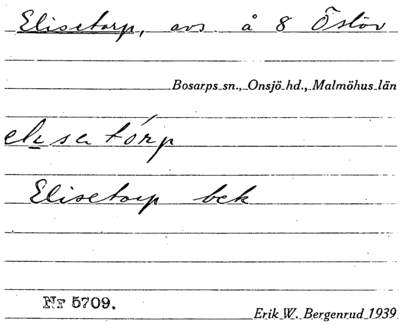 Elisetorp, avs å 8 Östöv
Bosarps sn., Onsjö hd., Malmöhus län
elisatórp
Elisetorp bek
Nr 5709.
Erik W. Bergenrud 1939